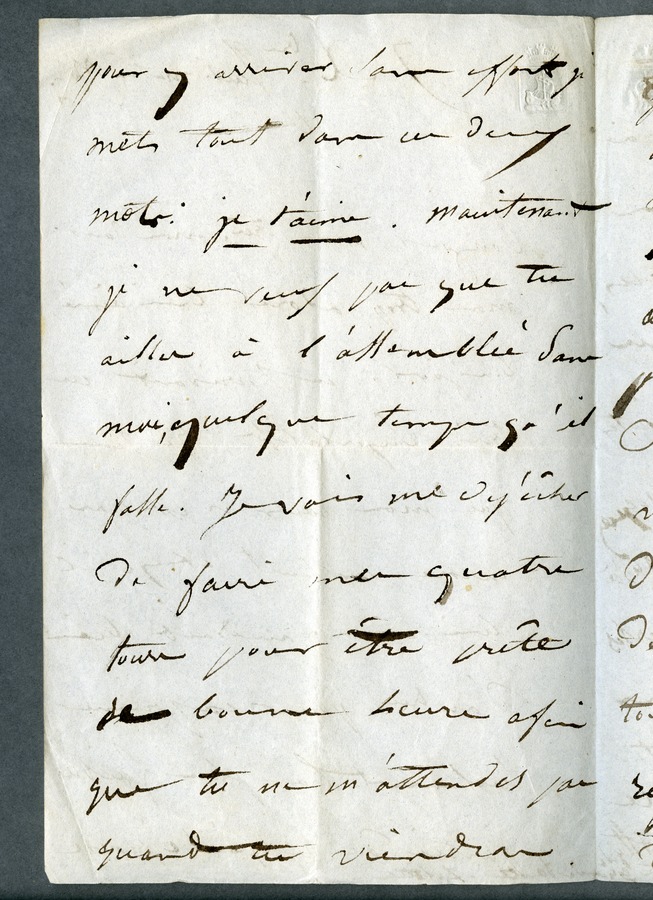 pour y arriver sans effort je
mets tout dans ces deux
mots: je t'aime. Maintenant
je ne veux pas que tu
ailles à l'assemblée sans
moi, quelque temps qu'il
fasse. Je vais me dépêcher
de faire mes quatre
tours pour être prête
de bonne heure afin
que tu ne m'attendes pas
quand tu viendras.